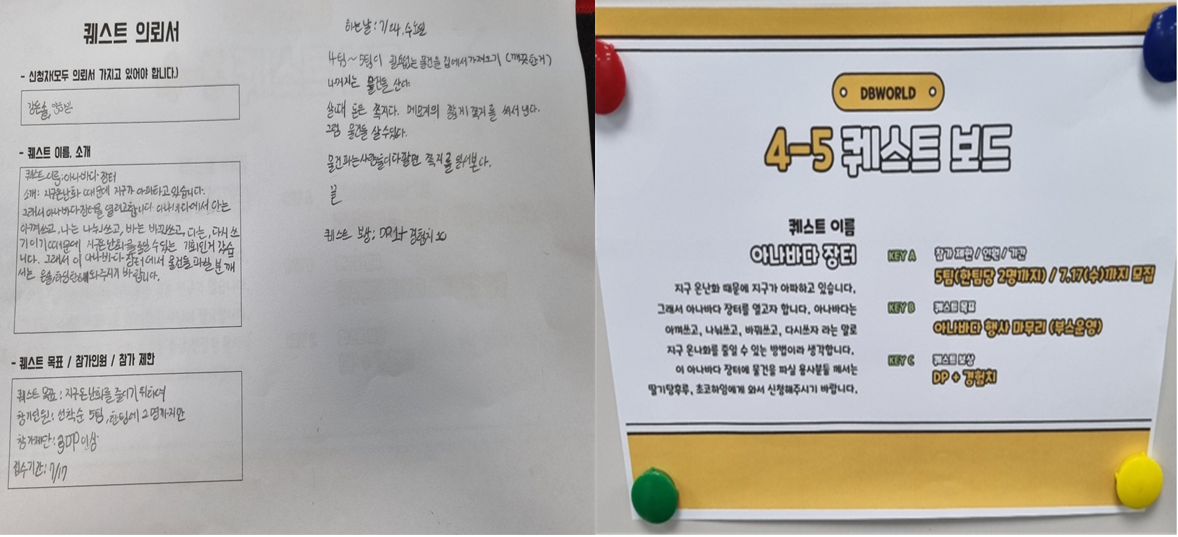 퀘스트 의뢰서
- 신청자(모두 의뢰서 가지고 있어야 합니다.)
- 퀘스트 이름, 소개
퀘스트 이름:아나바다 장터
소개: 지구온난화 때문에 지구가 아파하고 있습니다.
그래서 아나바다 장터를 열려고합니다 아나바다에서 아는
아껴쓰고, 나는 나눠쓰고, 바는 바꿔쓰고, 다는, 다시 쓰
기이기 때문에 지구온난화를 줄일 수 있는
니다. 그래서 이 아나바다 장터에서 물건을 파실 분 께
서는 와주시기 바랍니다.
- 퀘스트 목표 / 참가인원 / 참가 제한
퀘스트 목표 : 지구온난화를 줄이기 위하여
참가인원: 선착순 5팀, 한팀에 2명까지만
참가제한: 3DP 이상
접수기간: 7/17
하는날: 수요일
4팀~5팀이 필요없는 물건을 집에서 가져오기 (깨끗한거)
나머지는 물건을 산다.
살때 돈은 쪽지다. 메모지의 쪽지를 써서 낸다.
그럼 물건을 살수있다.
물건파는사람들이 다팔면 쪽지를 읽어본다.
끝
퀘스트 보상: 경험치
DBWORLD
4-5 퀘스트 보드
퀘스트 이름
아나바다 장터
지구 온난화 때문에 지구가 아파하고 있습니다.
그래서 아나바다 장터를 열고자 합니다. 아나바다는
아껴쓰고, 나눠쓰고, 바꿔쓰고, 다시쓰자 라는 말로
지구 온나화를 줄일 수 있는 방법이라 생각합니다.
이 아나바다 장터에 물건을 파실 용사분들 께서는
딸기탕후루, 초코하임에게 와서 신청해주시기 바랍니다.
KEY A 참가 제한 / 인원 / 기간
5팀(한팀당 2명까지) / 7.17(수)까지 모집
KEY B 퀘스트 목표
아나바다 행사 마무리 (부스운영)
KEY C 퀘스트 보상
DP + 경험치